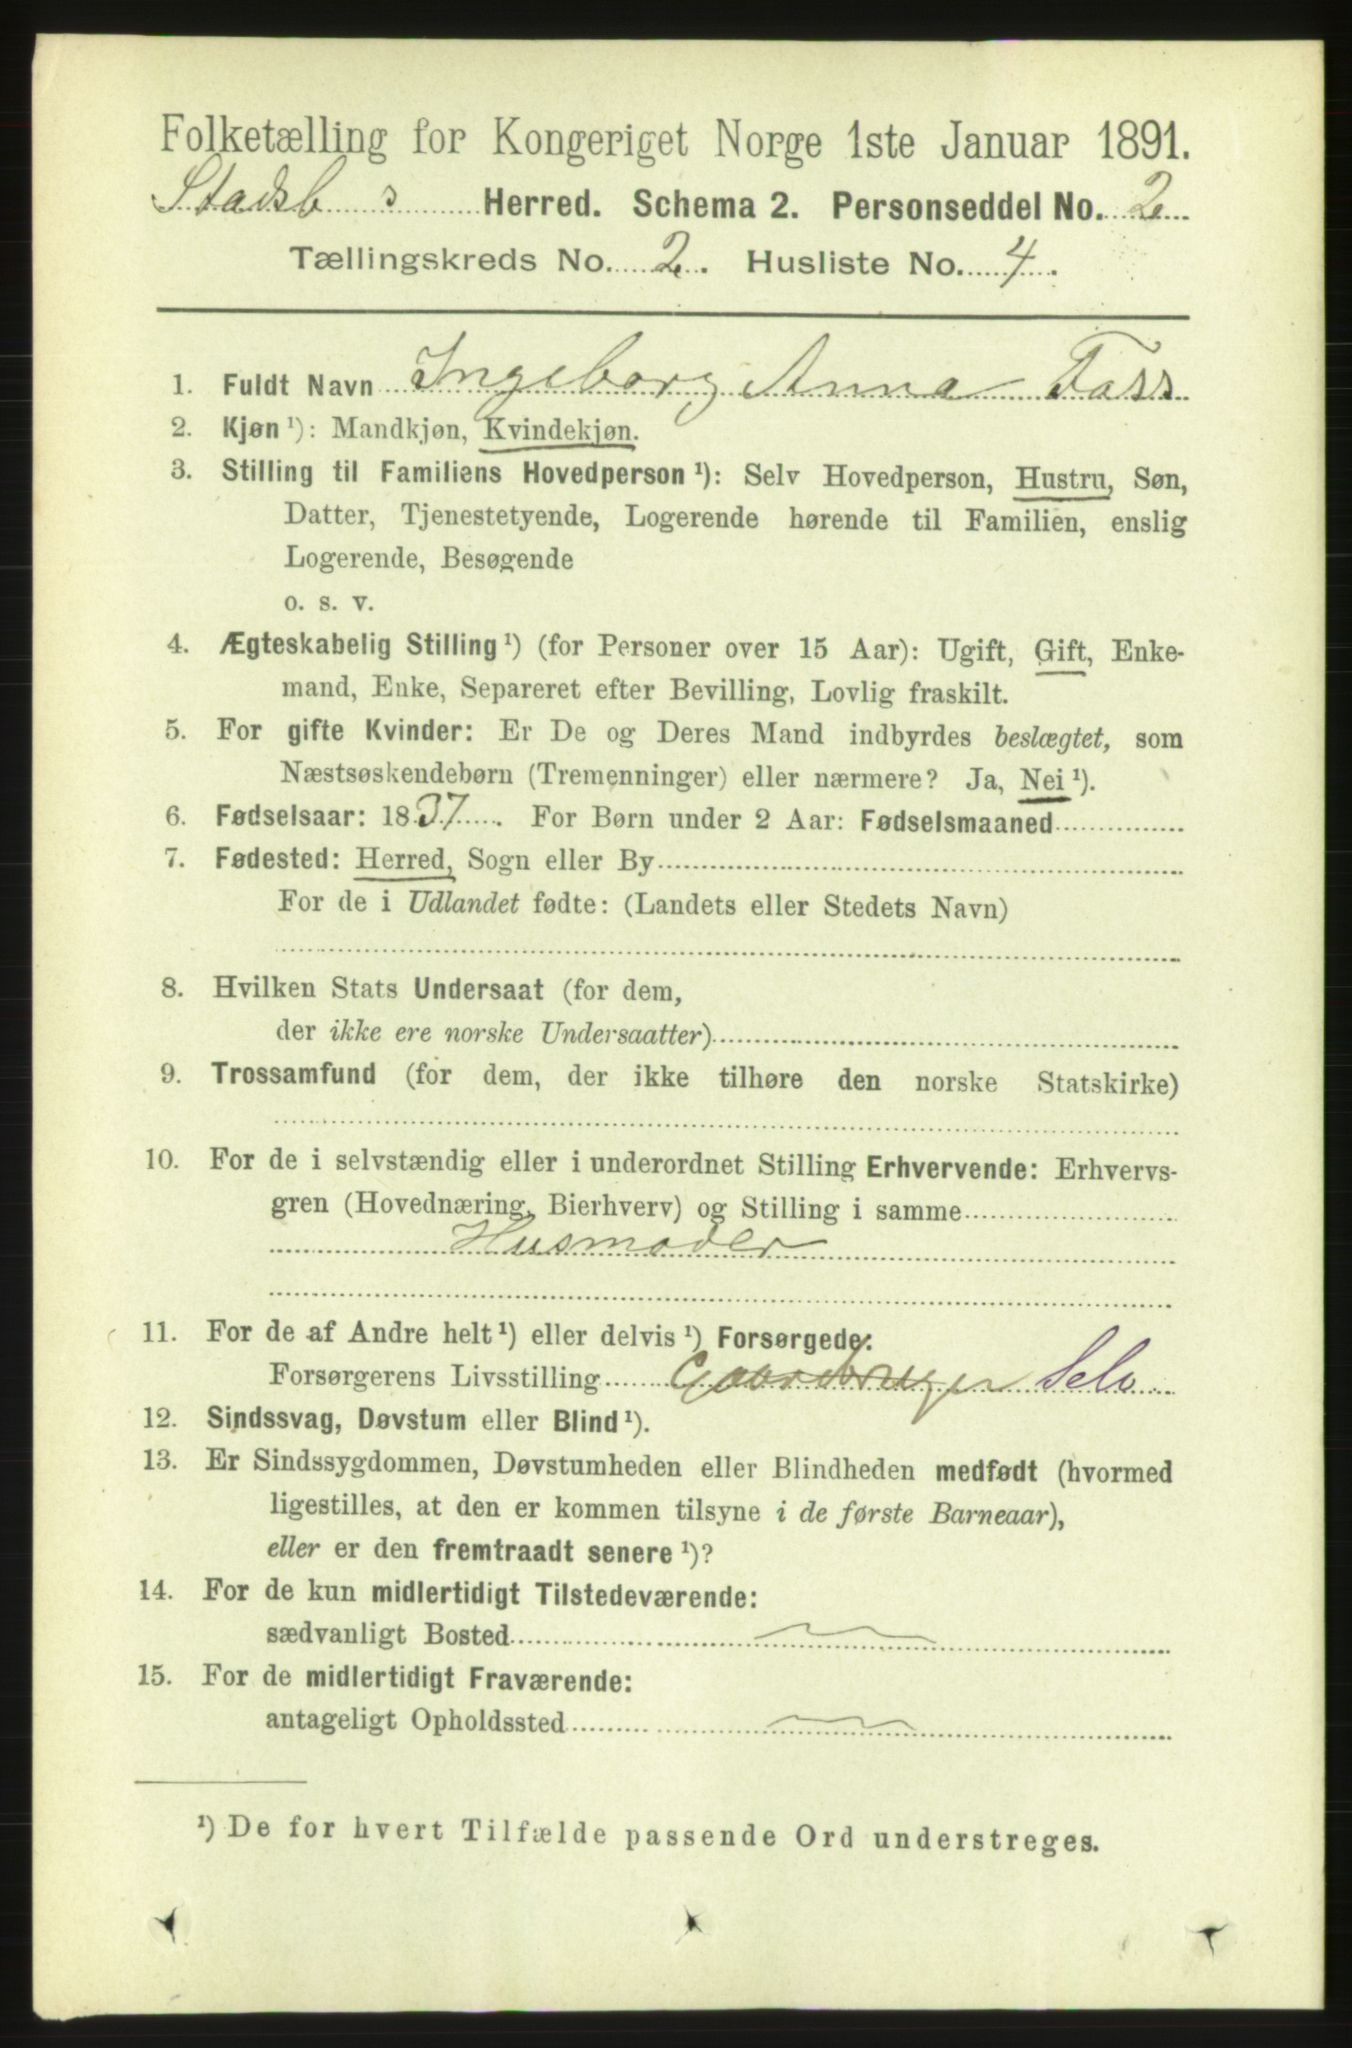 Folketælling for Kongeriget Norge 1ste Januar 1891.
Stadsb s Herred. Schema 2. Personseddel No. 2
Tællingskreds No. 2. Husliste No. 4.
1. Fuldt Navn Ingeborg Anna Foss
2. Kjøn ¹): Mandkjøn, Kvindekjøn.
3. Stilling til Familiens Hovedperson ¹): Selv Hovedperson, Hustru, Søn,
Datter, Tjenestetyende, Logerende hørende til Familien, enslig
Logerende, Besøgende
o. s. v.
4. Ægteskabelig Stilling ¹) (for Personer over 15 Aar): Ugift, Gift, Enke-
mand, Enke, Separeret efter Bevilling, Lovlig fraskilt.
5. For gifte Kvinder: Er De og Deres Mand indbyrdes beslægtet, som
Næstsøskendebørn (Tremenninger) eller nærmere? Ja, Nei ¹).
6. Fødselsaar: 1837. For Børn under 2 Aar: Fødselsmaaned
7. Fødested: Herred, Sogn eller By
For de i Udlandet fødte: (Landets eller Stedets Navn)
8. Hvilken Stats Undersaat (for dem,
der ikke ere norske Undersaatter)
9. Trossamfund (for dem, der ikke tilhøre den norske Statskirke)
10. For de i selvstændig eller i underordnet Stilling Erhvervende: Erhvervs-
gren (Hovednæring, Bierhverv) og Stilling i samme
Husmoder
11. For de af Andre helt ¹) eller delvis ¹) Forsørgede:
Forsørgerens Livsstilling Gaardbruger Selv
12. Sindssvag, Døvstum eller Blind ¹).
13. Er Sindssygdommen, Døvstumheden eller Blindheden medfødt (hvormed
ligestilles, at den er kommen tilsyne i de første Barneaar),
eller er den fremtraadt senere ¹)?
14. For de kun midlertidigt Tilstedeværende:
sædvanligt Bosted
15. For de midlertidigt Fraværende:
antageligt Opholdssted
¹) De for hvert Tilfælde passende Ord understreges.